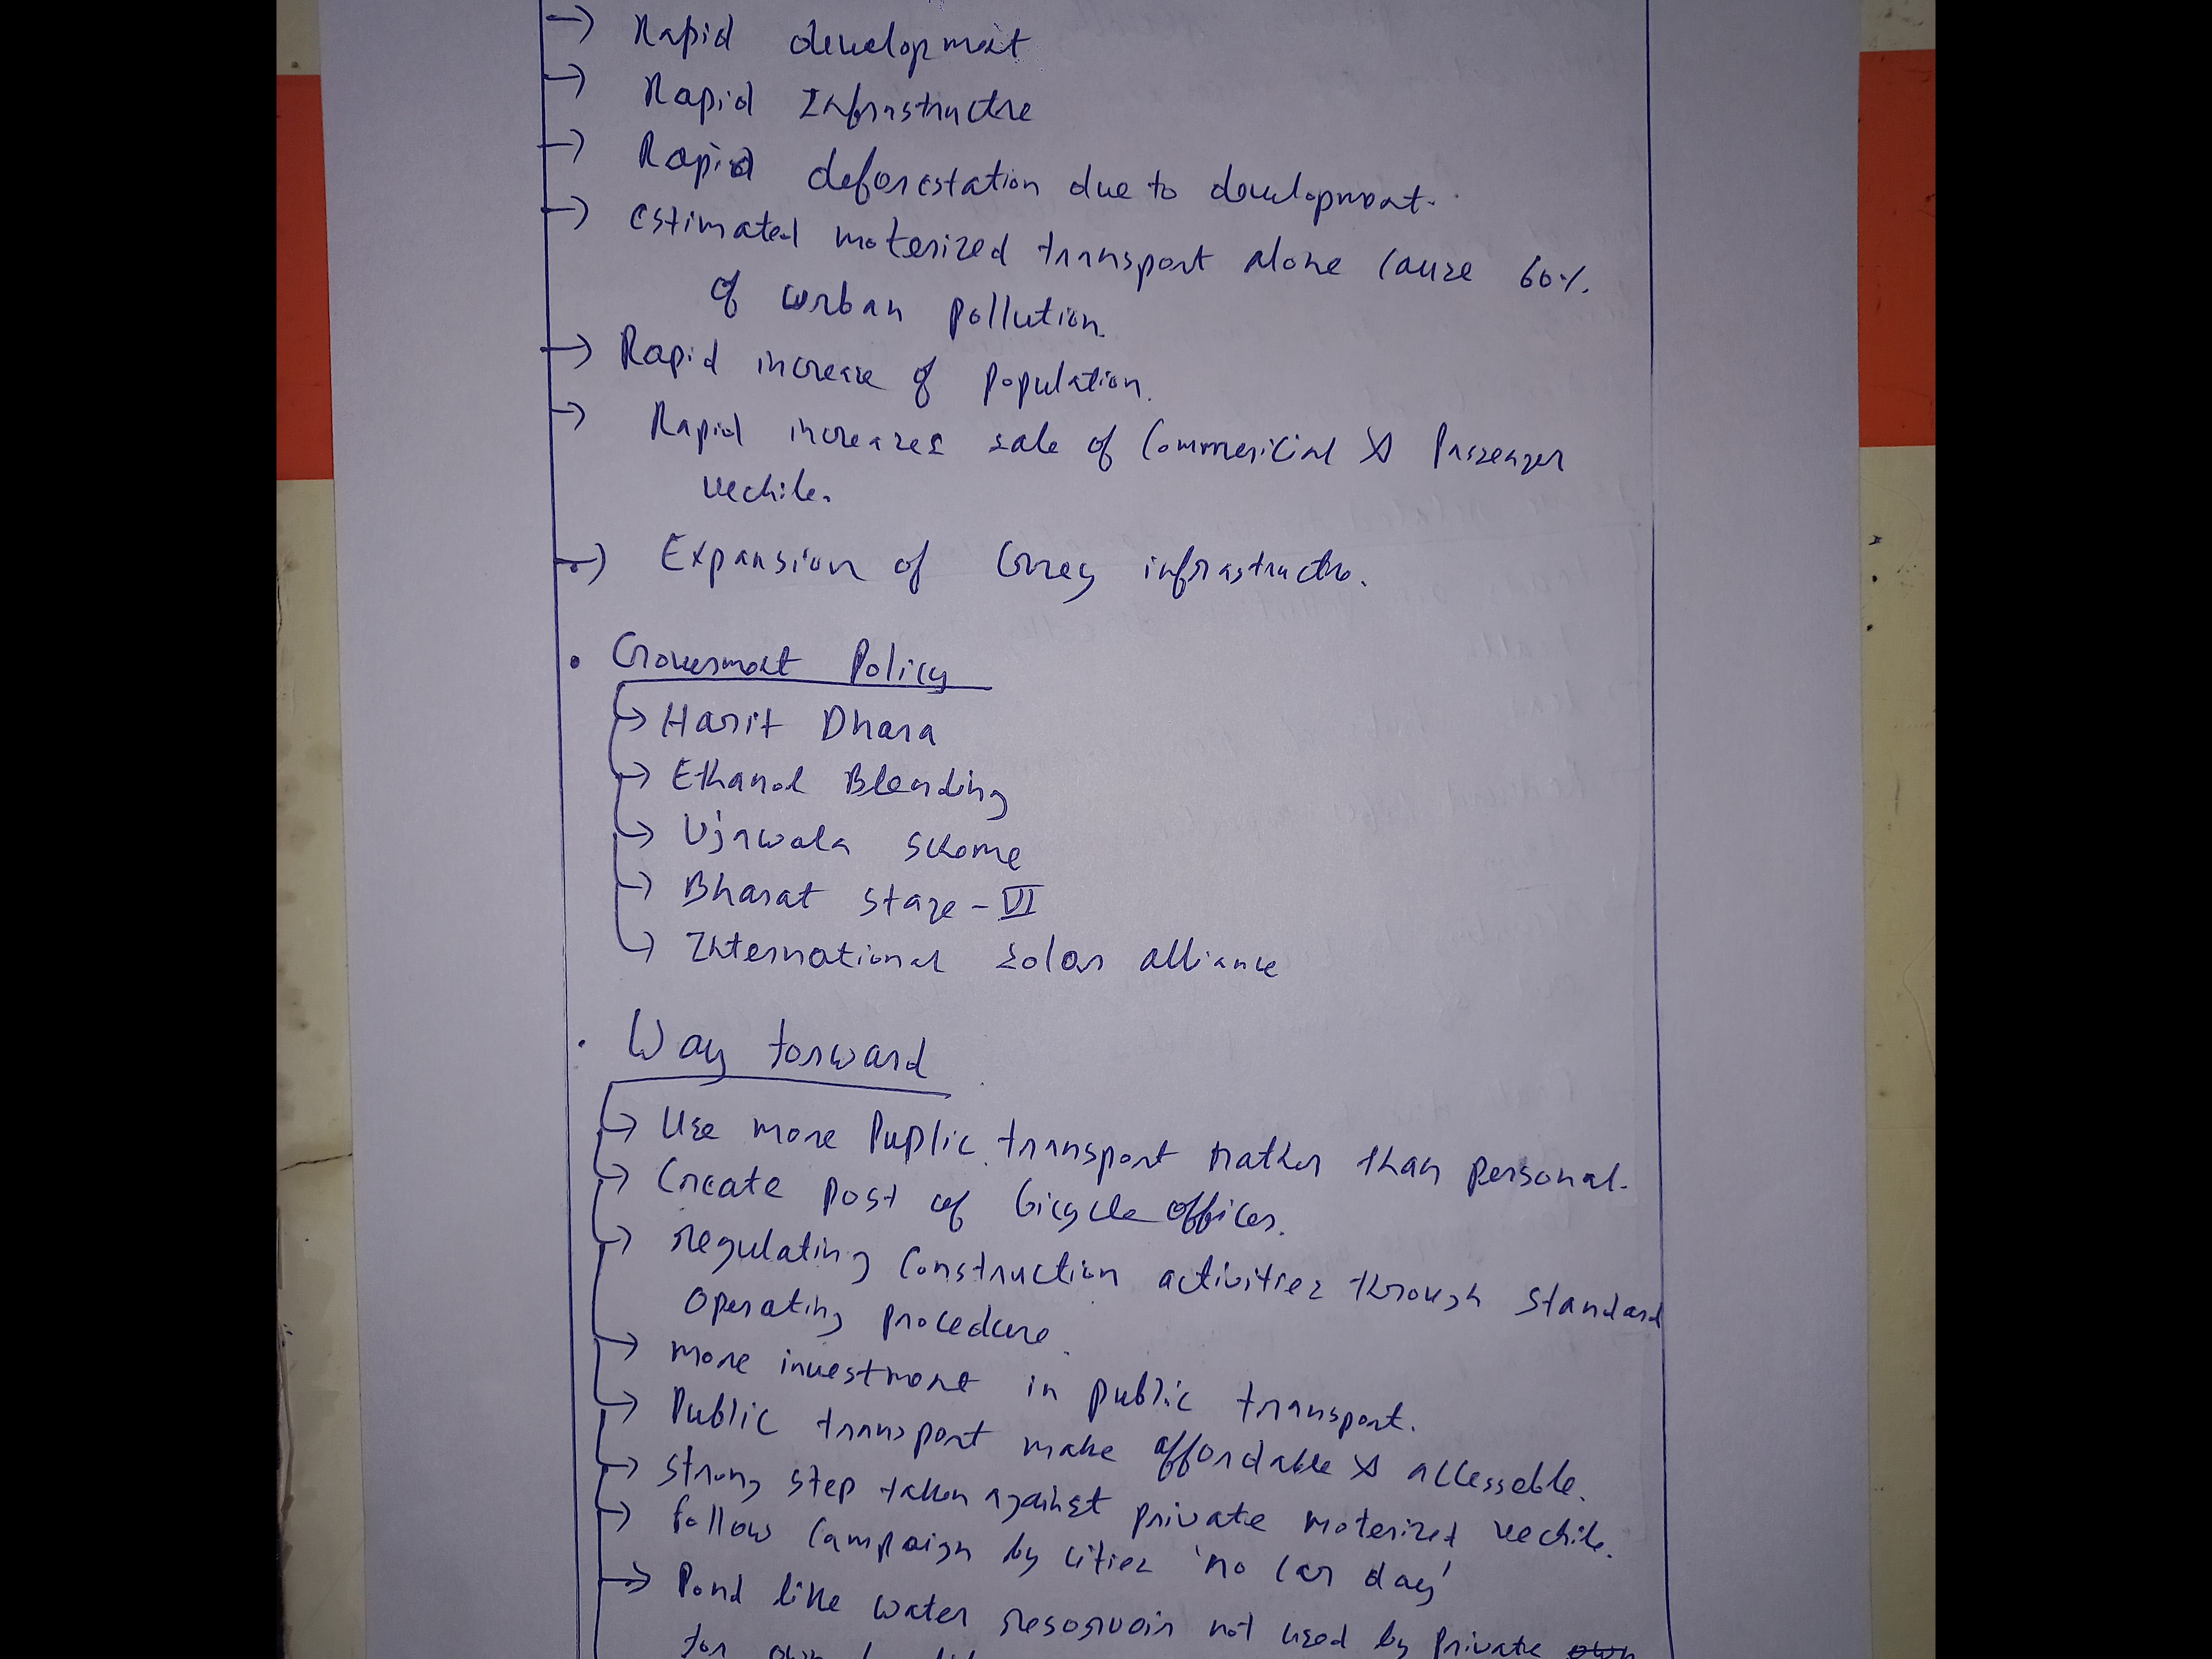 → Rapid development
→ Rapid Infrastructre
→ Rapid deforestation due to development.
→ estimated moterized transport alone cause 60%.
of urban pollution.
→ Rapid increase of population.
→ Rapid increases sale of Commericial & Passenger
vechile.
→ Expansion of Grey infrastructre.
• Goverment Policy
→ Harit Dhara
→ Ethanol Blending
→ Ujawala scheme
→ Bharat stage - VI
→ International solar alliance
• Way forward
→ Use more Puplic transport rather than personal.
→ Create post of bicycle officer.
→ regulating construction activities through standard
operating procedure.
→ more investment in public transport.
→ Public transport make affordable & accesseble.
→ strong step taken against private moterized vechile.
→ follow campaign by cities 'no car day'
→ Pond like water resorvoir not used by private
for own